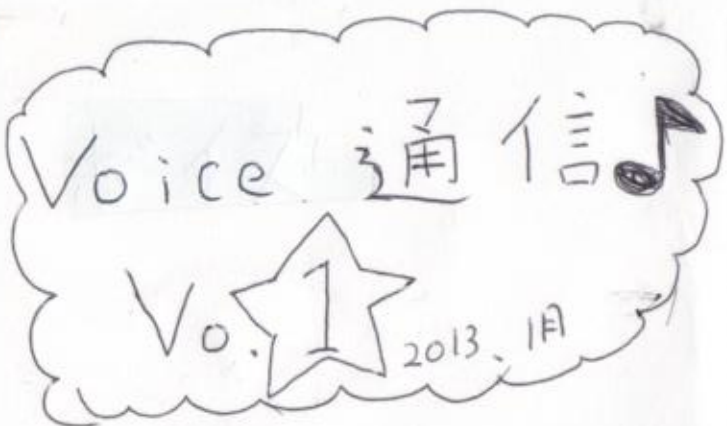 Voice 通信♪
Vo.1 2013、1月